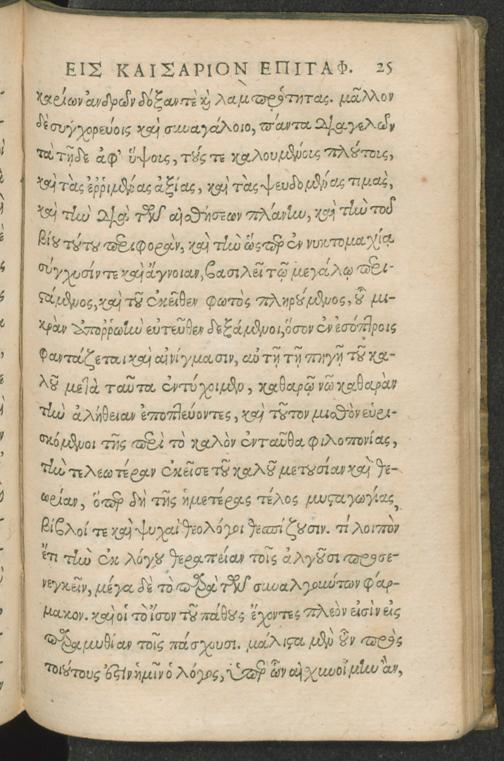 ΕΙΣ ΚΑΙΣΑΡΙΟΝ ΕΠΙΤΑΦ. 25
καρίων ἀνδρῶν δόξαν τὲ κὶ λαμπρότητας. μᾶλλον
δὲ συγχορεύοις καὶ συναγάλοιο, πάντα διαγελῶν
τὰ τῇδε ἀφ' ὕψοις, τούς τε καλουμένοις πλούτοις,
καὶ τὰς ἐῤῥιμμένας ἀξίας, καὶ τὰς ψευδομένας τιμὰς,
καὶ τὴν διὰ τῶν αἰσθήσεων πλάνην, καὶ τὴν τοῦ
βίου τούτου περιφορὰν, καὶ τὴν ὥσπερ ἐν νυκτομαχίᾳ
σύγχυσίν τε καὶ ἄγνοιαν, βασιλεῖ τῷ μεγάλῳ περι-
στάμενος, καὶ τοῦ ἐκεῖθεν φωτὸς πληρούμενος, οὗ μι-
κρὰν ἀπορροὴν εὐτεῦθεν δεξάμενοι, ὅσον ἐν ἐσόπτροις
φαντάζεται καὶ αἰνίγμασιν, αὐτῇ τῇ πηγῇ τοῦ κα-
λοῦ μετὰ ταῦτα ἐντύχοιμεν, καθαρῷ νῷ καθαρὰν
τὴν ἀλήθειαν ἐποπτεύοντες, καὶ τοῦτον μισθὸν εὑρι-
σκόμενοι τῆς περὶ τὸ καλὸν ἐνταῦθα φιλοπονίας,
τὴν τελεωτέραν ἐκεῖσε τοῦ καλοῦ μετουσίαν καὶ θε-
ωρίαν, ὅπερ δὴ τῆς ἡμετέρας τέλος μυσταγωγίας,
βίβλοί τε καὶ ψυχαὶ θεολόγοι θεσπίζουσιν. τί λοιπὸν
ἔτι τὴν ἐκ λόγου θεραπείαν τοῖς ἀλγοῦσι προσε-
νεγκεῖν, μέγα δὲ τὸ παρὰ τῶν συναλγούντων φάρ-
μακον. καὶ οἱ τὸ ἴσον τοῦ πάθους ἔχοντες πλεόν εἰσιν εἰς
παραμυθίαν τοῖς πάσχουσι. μάλιστα μὲν οὖν πρὸς
τοιούτους ἐστὶν ἡμῖν ὁ λόγος, ὑπὲρ ὧν αἰσχυνοίμην ἂν,